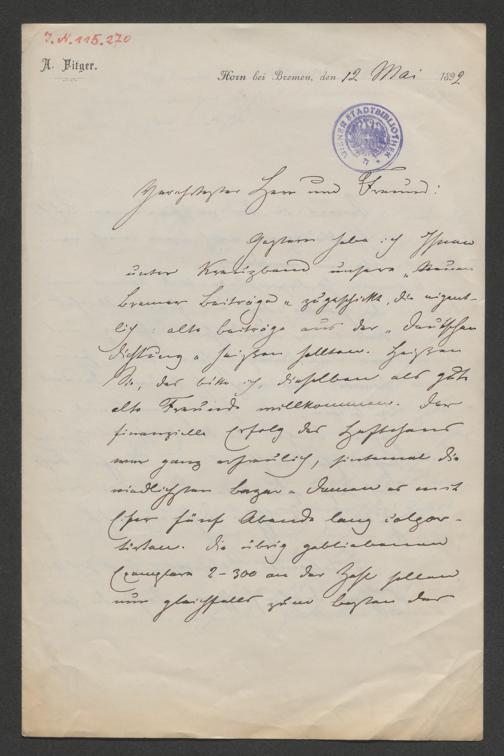 J.N. 115.270
A. Fitger.
Horn bei Bremen, den 12 Mai 1892
WIENER STADTBIBLIOTHEK
Verehrtester Herr und Freund!
Gestern habe ich Ihnen
unter Kreuzband unsere „Neuen
Bremer Beiträge“ zugeschickt, die eigent-
lich: alte Beiträge aus der „Deutschen
Dichtung“ heißen sollten. Heißen
Sie, das bitte ich, dieselben als gute
alte Freunde willkommen. Der
finanzielle Erfolg des Heftchens
war ganz erfreulich, sintemal die
niedlichsten Bazar-Damen es mit
Eifer fünf Abende lang colpor-
tirten. Die übrig gebliebenen
Exemplare 2-300 an der Zahl sollen
nun gleichfalls zum besten des